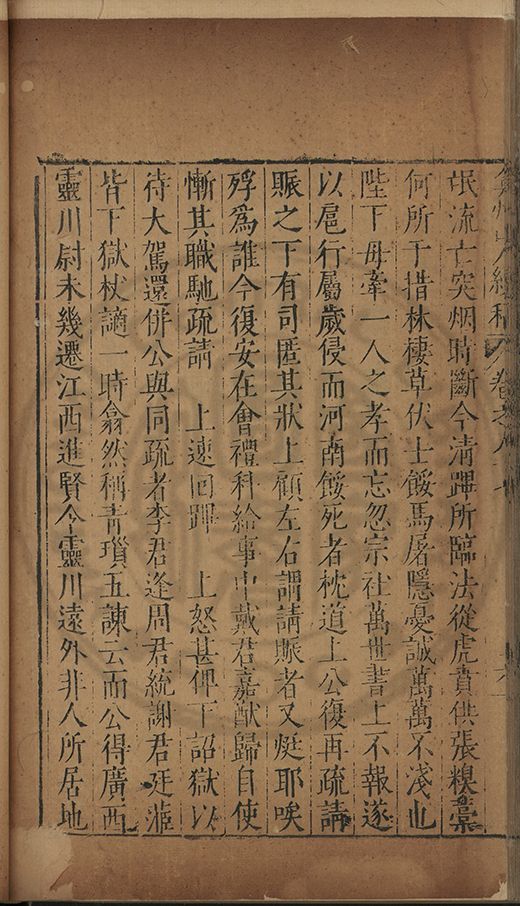 氓流亡突烟時斷今清蹕所臨法從虎賁供張糗藁
何所于措林棲草伏士餒馬屠隱憂誠萬萬不淺也
陛下毋牽一人之孝而忘忽宗社萬世書上不報遂
以扈行屬歲侵而河南餒死者枕道上公復再疏請
賑之下有司匿其狀上顧左右謂請賑者又娗耶唉
殍爲誰今復安在會禮科給事中戴君嘉猷歸自使
慚其職馳疏請　上速回蹕　上怒甚俾下詔獄以
待大駕還併公與同疏者李君逢周君統謝君廷蒞
皆下獄杖謫一時翕然稱青瑣五諫云而公得廣西
靈川尉未幾遷江西進賢令靈川遠外非人所居地